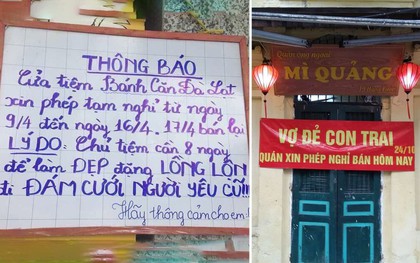 THÔNG BÁO
Cửa tiệm Bánh Căn Đà Lạt
xin phép tạm nghỉ từ ngày
9/4 đến ngày 16/4. 17/4 bán lại
LÝ DO: Chủ tiệm cần 8 ngày
để làm ĐẸP đặng LỒNG LỘN
đi ĐÁM CƯỚI NGƯỜI YÊU CŨ!!!
Hãy thông cảm cho em!
MÌ QUẢNG
VỢ ĐẺ CON TRAI
24/10
QUÁN XIN PHÉP NGHỈ BÁN HÔM NAY